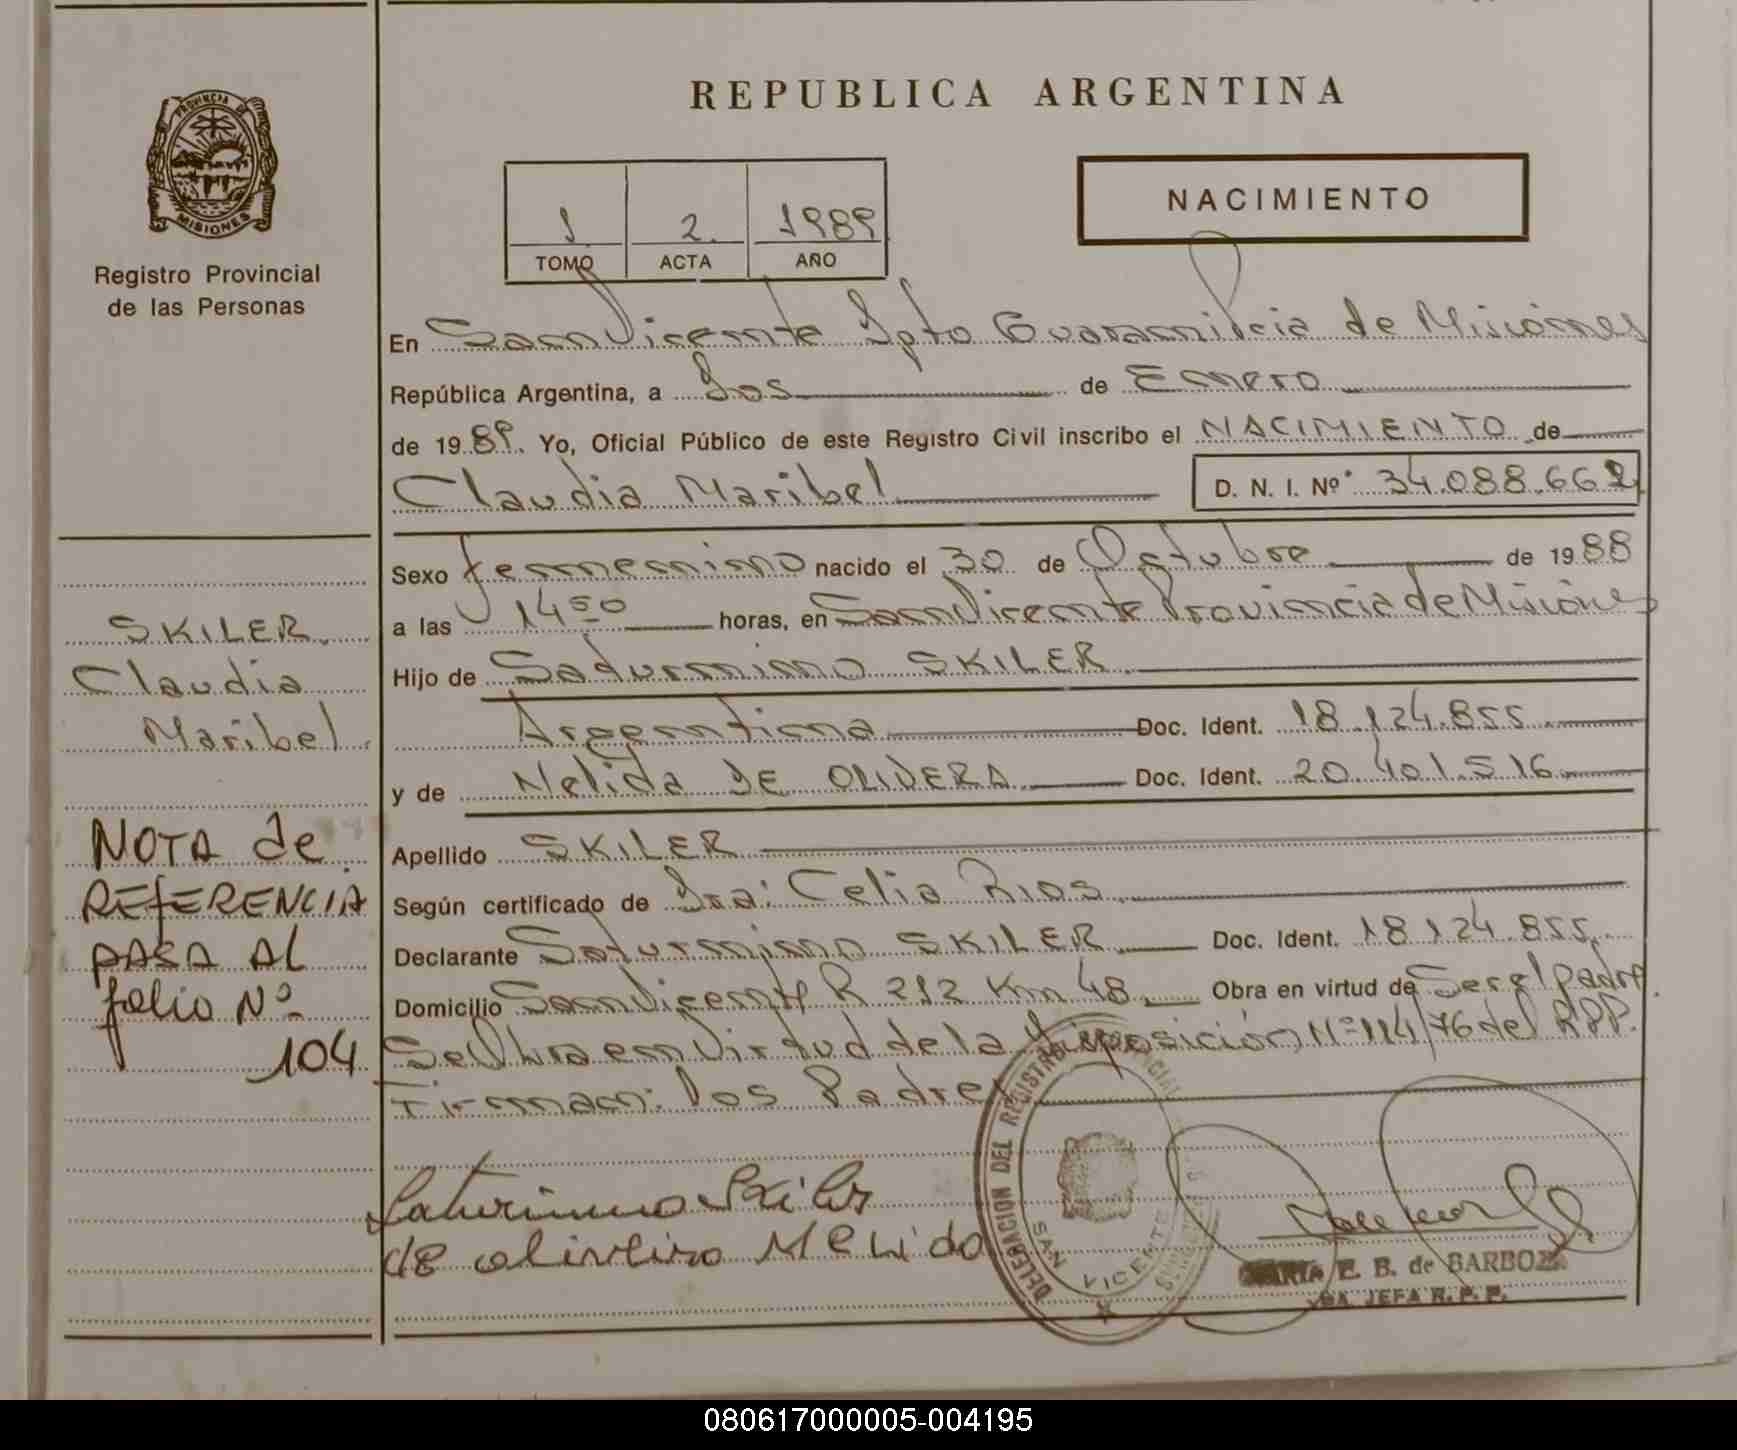 REPUBLICA ARGENTINA
PROVINCIA DE
MISIONES
Registro Provincial
de las Personas
NACIMIENTO
1. 2. 1989
TOMO ACTA AÑO
En San Vicente Dpto Guarani Pcia de Misiones
República Argentina, a Dos de Enero
de 1989. Yo, Oficial Público de este Registro Civil inscribo el NACIMIENTO de
Claudia Maribel D. N. I. Nº 34.088.662
Sexo femenino nacido el 30 de Octubre de 1988
a las 14 50 horas, en San Vicente Provincia de Misiones
Hijo de Saturnino SKILER.
Argentina Doc. Ident. 18.124.855
y de Nelida DE OLIVERA Doc. Ident. 20.401.516
Apellido SKILER
Según certificado de Dra: Celia Rios
Declarante Saturnino SKILER Doc. Ident. 18.124.855
Domicilio San Vicente R 212 Km 48 Obra en virtud de Ser el padre.
Se Obra en Virtud de la Disposición Nº 114/76 del RPP.
Firman: Los Padres
SKILER.
Claudia
Maribel.
NOTA de
REfERENCIA
PASA AL
folio Nº
104
Saturnino Skiler
de oliveira Nelida
DELEGACION DEL REGISTRO PROVINCIAL
SAN VICENTE
E. B. de BARBOZA
JEFA R. P. P.
080617000005-004195